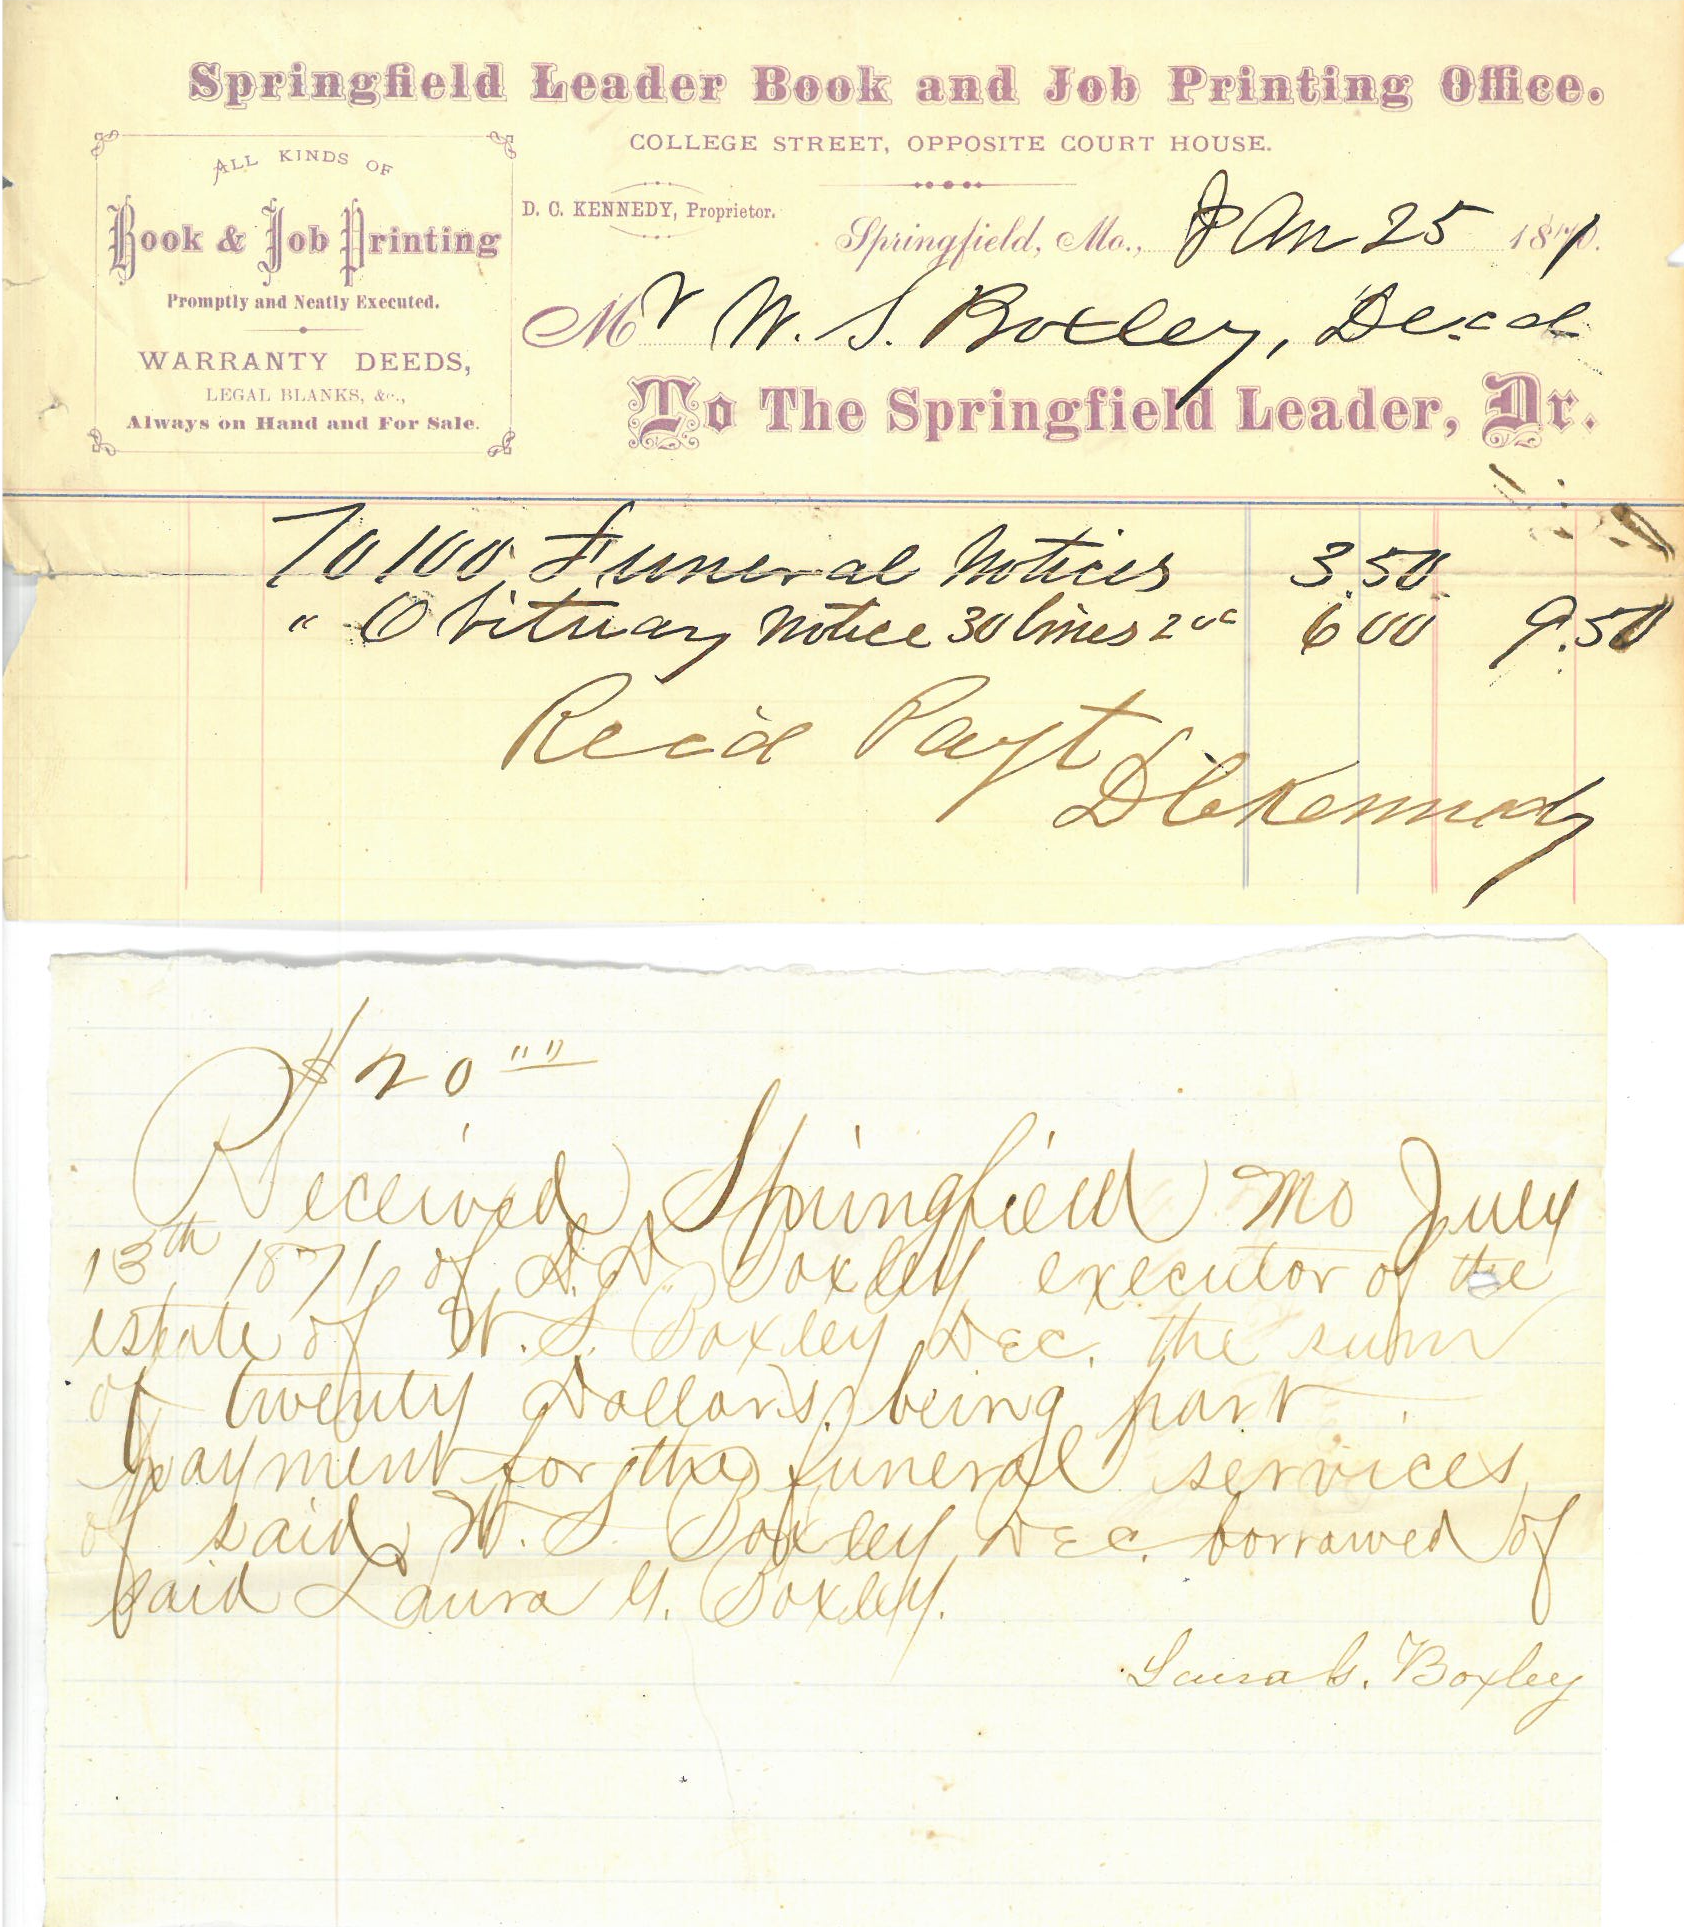 Springfield Leader Book and Job Printing Office.
COLLEGE STREET, OPPOSITE COURT HOUSE.
ALL KINDS OF
Book & Job Printing
Promptly and Neatly Executed.
WARRANTY DEEDS,
LEGAL BLANKS, &c.,
Always on Hand and For Sale.
D. C. KENNEDY, Proprietor.
Springfield, Mo., Jan 25 1871.
Mr W. S. Boxley, Decd
To The Springfield Leader, Dr.
To 100 Funeral Notices 3.50
" Obituary Notice 30 lines 20c 6 00 9.50
Rec'd Payt
D C Kennedy
$20""
Received Springfield Mo July
13th 1871 of D. D Boxley executor of the
estate of W. S. Boxley Dec. the sum
of twenty Dollars, being part
payment for the funeral services
of said W. S Boxley Dec. borrowed of
said Laura G. Boxley.
Laura G. Boxley